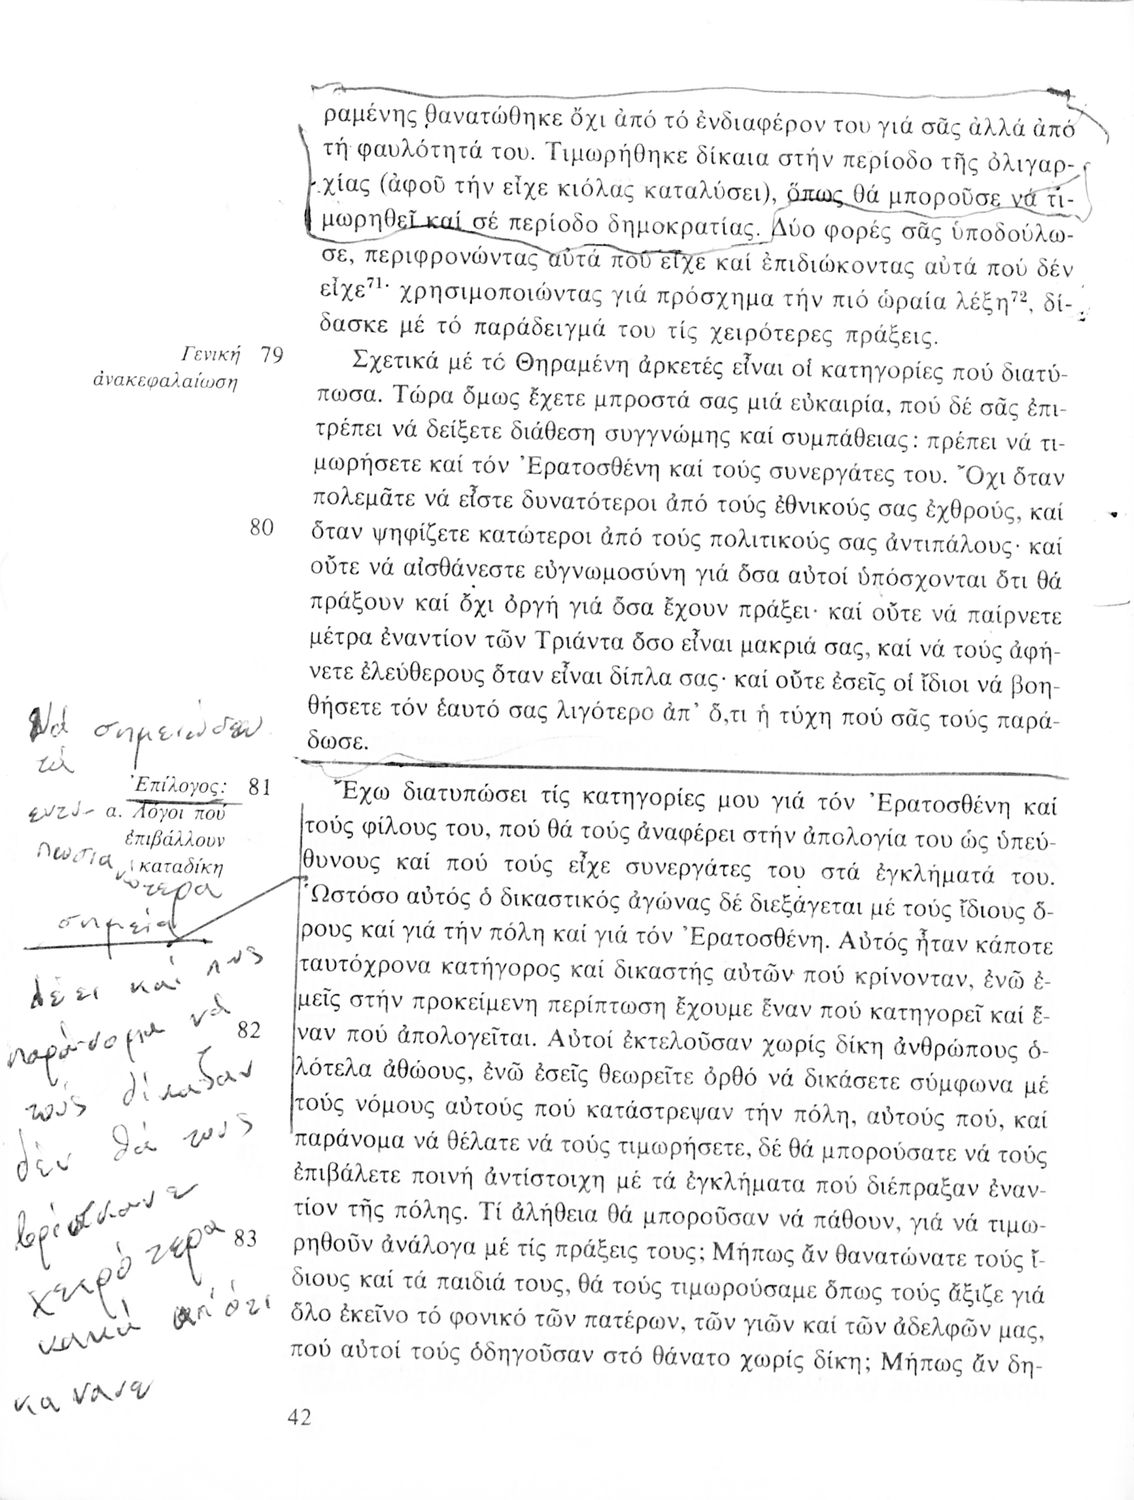 ραμένης θανατώθηκε ὄχι ἀπό τό ἐνδιαφέρον του γιά σᾶς ἀλλά ἀπό
τή φαυλότητά του. Τιμωρήθηκε δίκαια στήν περίοδο τῆς ὀλιγαρ-
χίας (ἀφοῦ τήν εἶχε κιόλας καταλύσει), ὅπως θά μποροῦσε νά τι-
μωρηθεῖ καί σέ περίοδο δημοκρατίας. Δύο φορές σᾶς ὑποδούλω-
σε, περιφρονώντας αὐτά πού εἶχε καί ἐπιδιώκοντας αὐτά πού δέν
εἶχε⁷¹· χρησιμοποιώντας γιά πρόσχημα τήν πιό ὡραία λέξη⁷², δί-
δασκε μέ τό παράδειγμά του τίς χειρότερες πράξεις.
Γενική 79
ἀνακεφαλαίωση
Σχετικά μέ τό Θηραμένη ἀρκετές εἶναι οἱ κατηγορίες πού διατύ-
πωσα. Τώρα ὅμως ἔχετε μπροστά σας μιά εὐκαιρία, πού δέ σᾶς ἐπι-
τρέπει νά δείξετε διάθεση συγγνώμης καί συμπάθειας: πρέπει νά τι-
μωρήσετε καί τόν Ἐρατοσθένη καί τούς συνεργάτες του. Ὄχι ὅταν
πολεμᾶτε νά εἶστε δυνατότεροι ἀπό τούς ἐθνικούς σας ἐχθρούς, καί
80 ὅταν ψηφίζετε κατώτεροι ἀπό τούς πολιτικούς σας ἀντιπάλους· καί
οὔτε νά αἰσθάνεστε εὐγνωμοσύνη γιά ὅσα αὐτοί ὑπόσχονται ὅτι θά
πράξουν καί ὄχι ὀργή γιά ὅσα ἔχουν πράξει· καί οὔτε νά παίρνετε
μέτρα ἐναντίον τῶν Τριάντα ὅσο εἶναι μακριά σας, καί νά τούς ἀφή-
νετε ἐλεύθερους ὅταν εἶναι δίπλα σας· καί οὔτε ἐσεῖς οἱ ἴδιοι νά βοη-
θήσετε τόν ἑαυτό σας λιγότερο ἀπ' ὅ,τι ἡ τύχη πού σᾶς τούς παρά-
δωσε.
Νά σημειώσεω
τά
εντυ-
πωσια
κώτερα
σημεία
Ἐπίλογος: 81
α. Λόγοι πού
ἐπιβάλλουν
καταδίκη
Ἔχω διατυπώσει τίς κατηγορίες μου γιά τόν Ἐρατοσθένη καί
τούς φίλους του, πού θά τούς ἀναφέρει στήν ἀπολογία του ὡς ὑπεύ-
θυνους καί πού τούς εἶχε συνεργάτες του στά ἐγκλήματά του.
Ὡστόσο αὐτός ὁ δικαστικός ἀγώνας δέ διεξάγεται μέ τούς ἴδιους ὅ-
ρους καί γιά τήν πόλη καί γιά τόν Ἐρατοσθένη. Αὐτός ἦταν κάποτε
ταυτόχρονα κατήγορος καί δικαστής αὐτῶν πού κρίνονταν, ἐνῶ ἐ-
μεῖς στήν προκείμενη περίπτωση ἔχουμε ἕναν πού κατηγορεῖ καί ἕ-
82 ναν πού ἀπολογεῖται. Αὐτοί ἐκτελοῦσαν χωρίς δίκη ἀνθρώπους ὁ-
λότελα ἀθώους, ἐνῶ ἐσεῖς θεωρεῖτε ὀρθό νά δικάσετε σύμφωνα μέ
τούς νόμους αὐτούς πού κατάστρεψαν τήν πόλη, αὐτούς πού, καί
παράνομα νά θέλατε νά τούς τιμωρήσετε, δέ θά μπορούσατε νά τούς
ἐπιβάλετε ποινή ἀντίστοιχη μέ τά ἐγκλήματα πού διέπραξαν ἐναν-
τίον τῆς πόλης. Τί ἀλήθεια θά μποροῦσαν νά πάθουν, γιά νά τιμω-
83 ρηθοῦν ἀνάλογα μέ τίς πράξεις τους; Μήπως ἄν θανατώνατε τούς ἴ-
διους καί τά παιδιά τους, θά τούς τιμωρούσαμε ὅπως τούς ἄξιζε γιά
ὅλο ἐκεῖνο τό φονικό τῶν πατέρων, τῶν γιῶν καί τῶν ἀδελφῶν μας,
πού αὐτοί τούς ὁδηγοῦσαν στό θάνατο χωρίς δίκη; Μήπως ἄν δη-
λέει καί πως
παράνομα νά
τούς δίκαζαν
δέν θά τους
βρίσκανε
χειρότερα
κακά ἀπ' ότι
κανανε
42